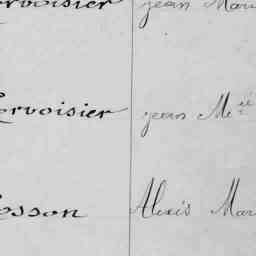 ervoisier jean Mari
ervoisier jean Mie
esson Alexis Mar